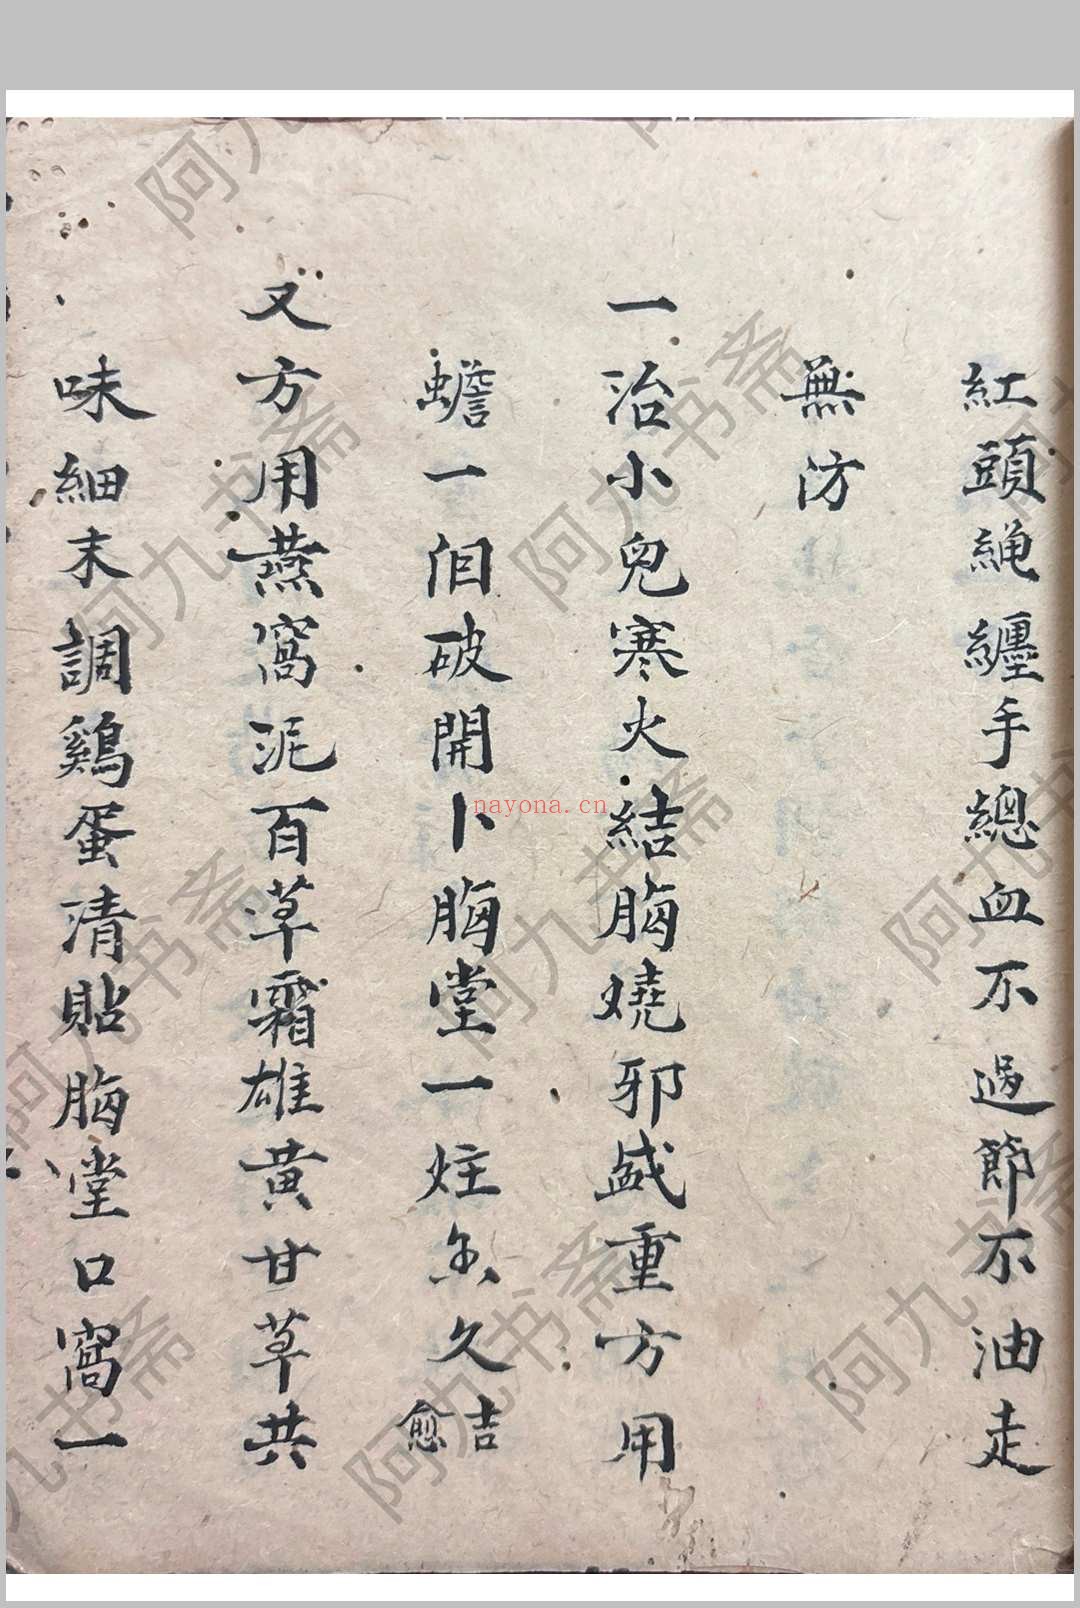 紅頭繩纏手總血不過節不油走
無防
一治小兒寒火結胸燒邪盛重方用
蟾一泪破開卜胸堂一炷香久吉愈
又方用燕窩泥百草霜雄黃甘草共
味細末調鷄蛋清貼胸堂口窩一
nayona.cn
阿九书斋